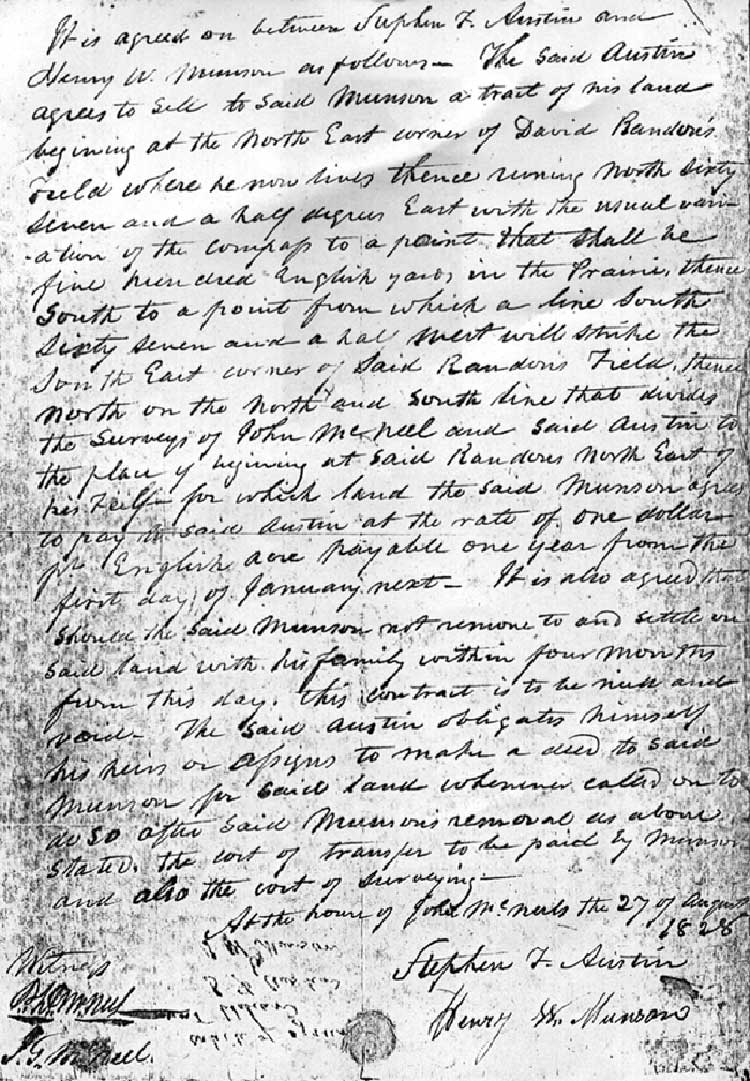 It is agreed on between Stephen F. Austin and
Henry W. Munson as follows— The said Austin
agrees to sell to said Munson a tract of his land
begining at the North East corner of David Randon's
Field where he now lives thence runing North sixty
seven and a half degrees East with the usual vari-
-ation of the compass to a point that shall be
five hundred English yards in the Prairie, thence
South to a point from which a line South
sixty seven and a hal west will strike the
South East corner of said Randons Field, thence
North on the North and South line that divides
the Surveys of John McNeel and said Austin to
the place of begining at said Randons North East of
for which land the said Munson agrees
to pay said Austin at the rate of one dollar
pr English acre payable one year from the
first day of January next— It is also agreed that
should the said Munson not remove to and settle on
said land with his family within four months
from this day, this contract is to be null and
void— The said Austin obligates himself
his heirs or assigns to make a deed to said
Munson for said land whenever called on to
do so after said Munson's removal as above
stated, the cost of transfer to be paid by Munson
and also the cost of surveying—
At the house of John McNeels the 27 of August
1828
Witness
Stephen F. Austin
Henry W. Munson
J. G. McNeel.